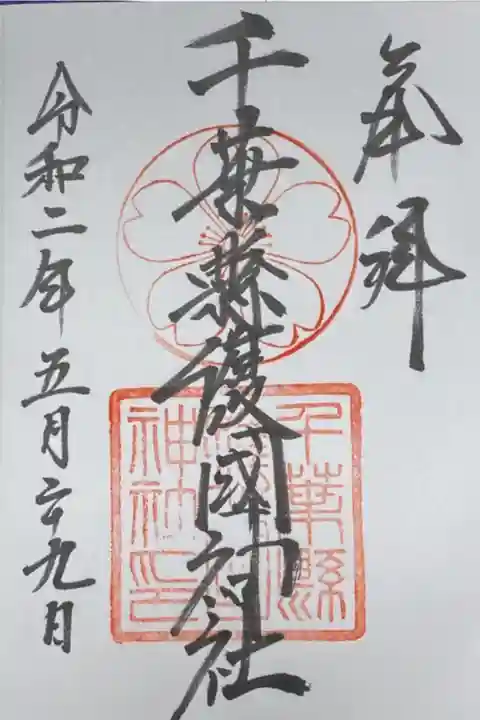 奉拝
千葉縣護國神社
令和二年五月二十九日
千葉縣
神社印